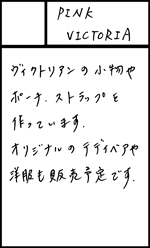 PINK
VICTORIA
ヴィクトリアンの小物や
ポーチ、ストラップを
作っています.
オリジナルのテディベアや
洋服も販売予定です.